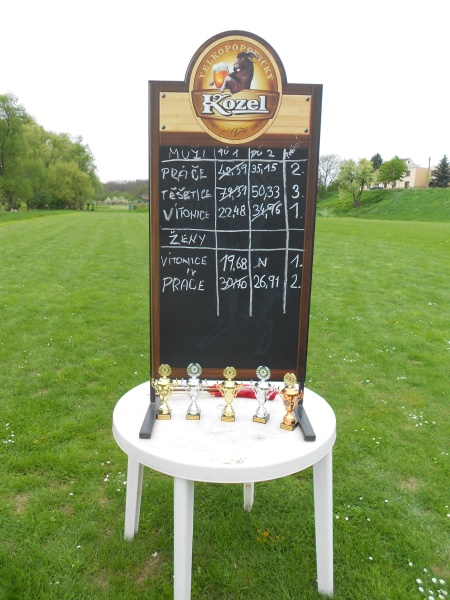 VELKOPOPOVICKÝ
Kozel
MUŽI PÚ 1 PÚ 2
PRÁČE 48,59 35,15 2.
TĚŠETICE 79,51 50,33 3.
VÍTONICE 22,48 34,96 1.
ŽENY
VÍTONICE 19,68 N 1.
PRÁČE 30,70 26,91 2.